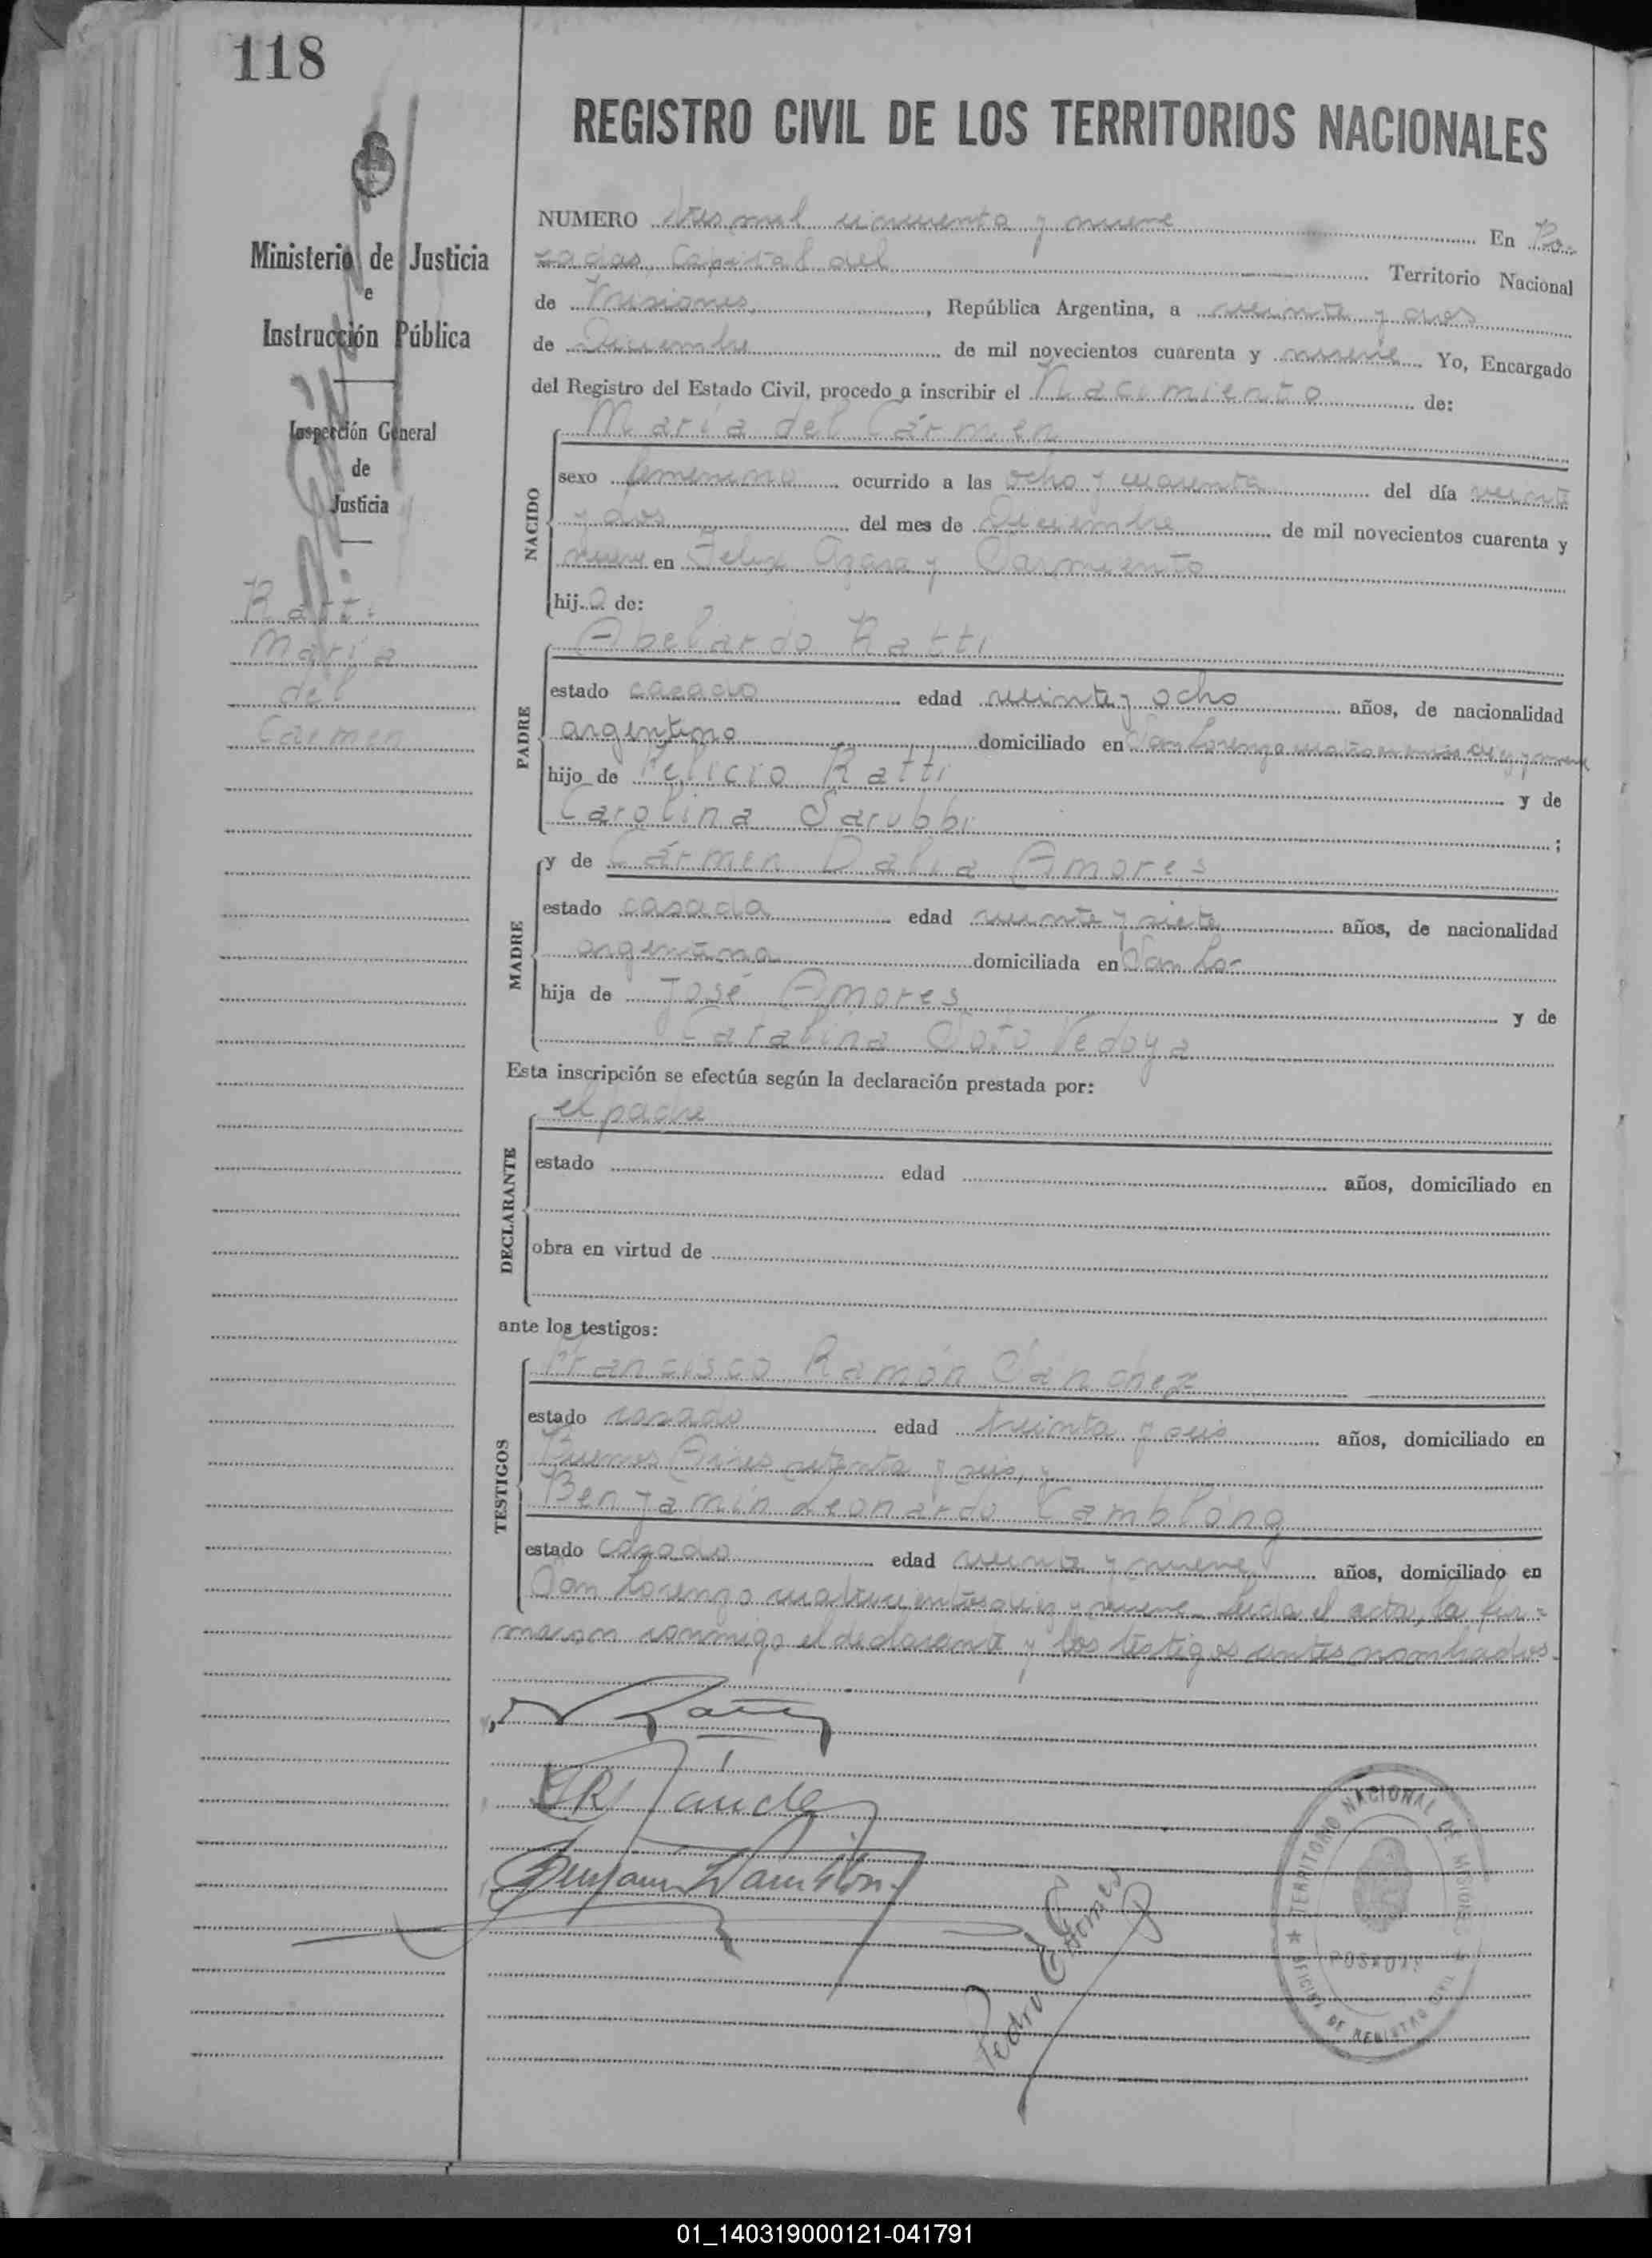 118
REGISTRO CIVIL DE LOS TERRITORIOS NACIONALES
Ministerio de Justicia
e
Instrucción Pública
Inspección General
de
Justicia
Ratti
María
del
Carmen
NUMERO tres mil cincuenta y nueve En Po-
sadas, Capital del Territorio Nacional
de Misiones, República Argentina, a veinte y dos
de Diciembre de mil novecientos cuarenta y nueve Yo, Encargado
del Registro del Estado Civil, procedo a inscribir el Nacimiento de:
NACIDO
María del Cármen
sexo femenino ocurrido a las ocho y cuarenta del día veinte
y dos del mes de Diciembre de mil novecientos cuarenta y
nueve en Felix Azara y Sarmiento
hija de:
PADRE
Abelardo Ratti
estado casado edad veinte y ocho años, de nacionalidad
argentino domiciliado en San Lorenzo cuatrocientos diez y nueve
hijo de Felicio Ratti y de
Carolina Sarubbi ;
MADRE
y de Cármen Dalia Amores
estado casada edad veinte y siete años, de nacionalidad
argentina domiciliada en San Lo-
hija de José Amores y de
Catalina Soto Vedoya
Esta inscripción se efectúa según la declaración prestada por:
DECLARANTE
el padre
estado edad años, domiciliado en
obra en virtud de
ante los testigos:
TESTIGOS
Francisco Ramón Sánchez
estado casado edad treinta y seis años, domiciliado en
Buenos Aires setenta y seis, y
Benjamín Leonardo Camblong
estado casado edad veinte y nueve años, domiciliado en
San Lorenzo cuatrocientos diez y nueve. Leida el acta, la fir-
maron conmigo el declarante y los testigos antes nombrados.
Ratti
FR Sánchez
Benjamin Camblong
Pedro C Gomes
TERRITORIO NACIONAL DE MISIONES
POSADAS
OFICINA DE REGISTRO CIVIL
01_140319000121-041791